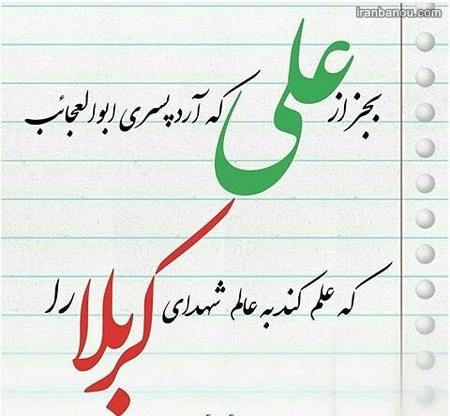 iranbanou.com
بجز از علی که آرد پسری ابوالعجائب
که علم کند به عالم شهدای کربلا را